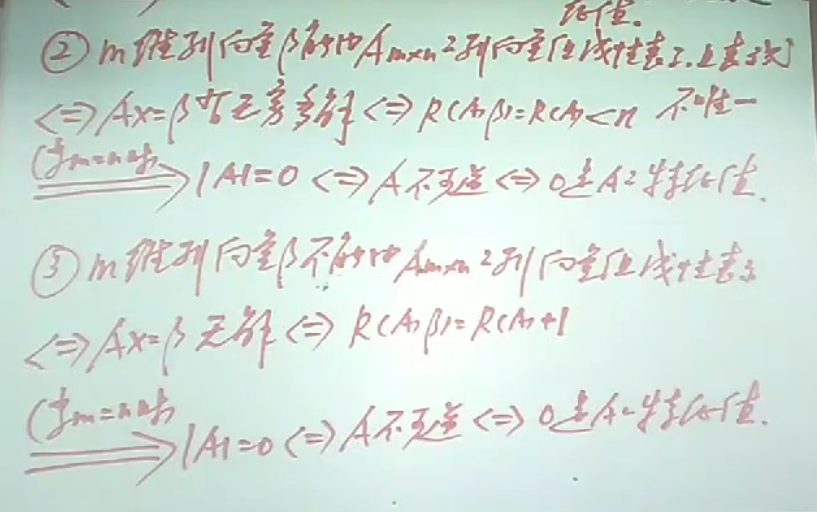 征值.
② m维列向量β能由A_{m×n}之列向量组线性表示,且表示式
<=> Ax=β有无穷多解 <=> R(A,β)=R(A)<n 不唯一
(当m=n时) ⟹ |A|=0 <=> A不可逆 <=> 0是A之特征值.
③ m维列向量β不能由A_{m×n}之列向量组线性表示
<=> Ax=β无解 <=> R(A,β)=R(A)+1
(当m=n时) ⟹ |A|=0 <=> A不可逆 <=> 0是A之特征值.